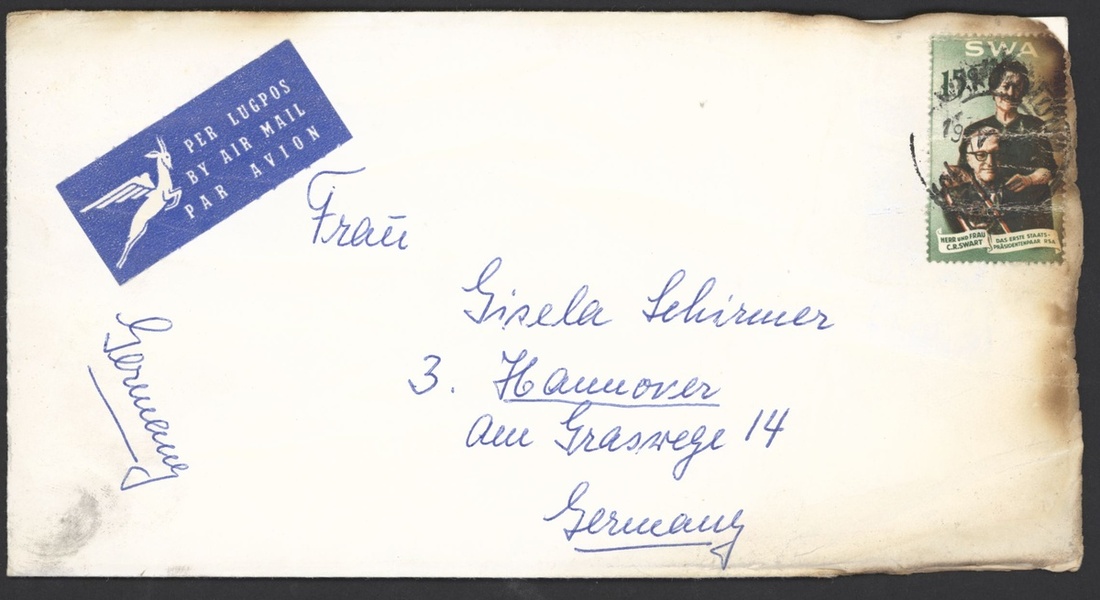 PER LUGPOS
BY AIR MAIL
PAR AVION
SWA
15c
HERR UND FRAU
C.R.SWART
DAS ERSTE STAATS-
PRÄSIDENTENPAAR RSA
Frau
Gisela Schirmer
3. Hannover
Am Graswege 14
Germany
Germany